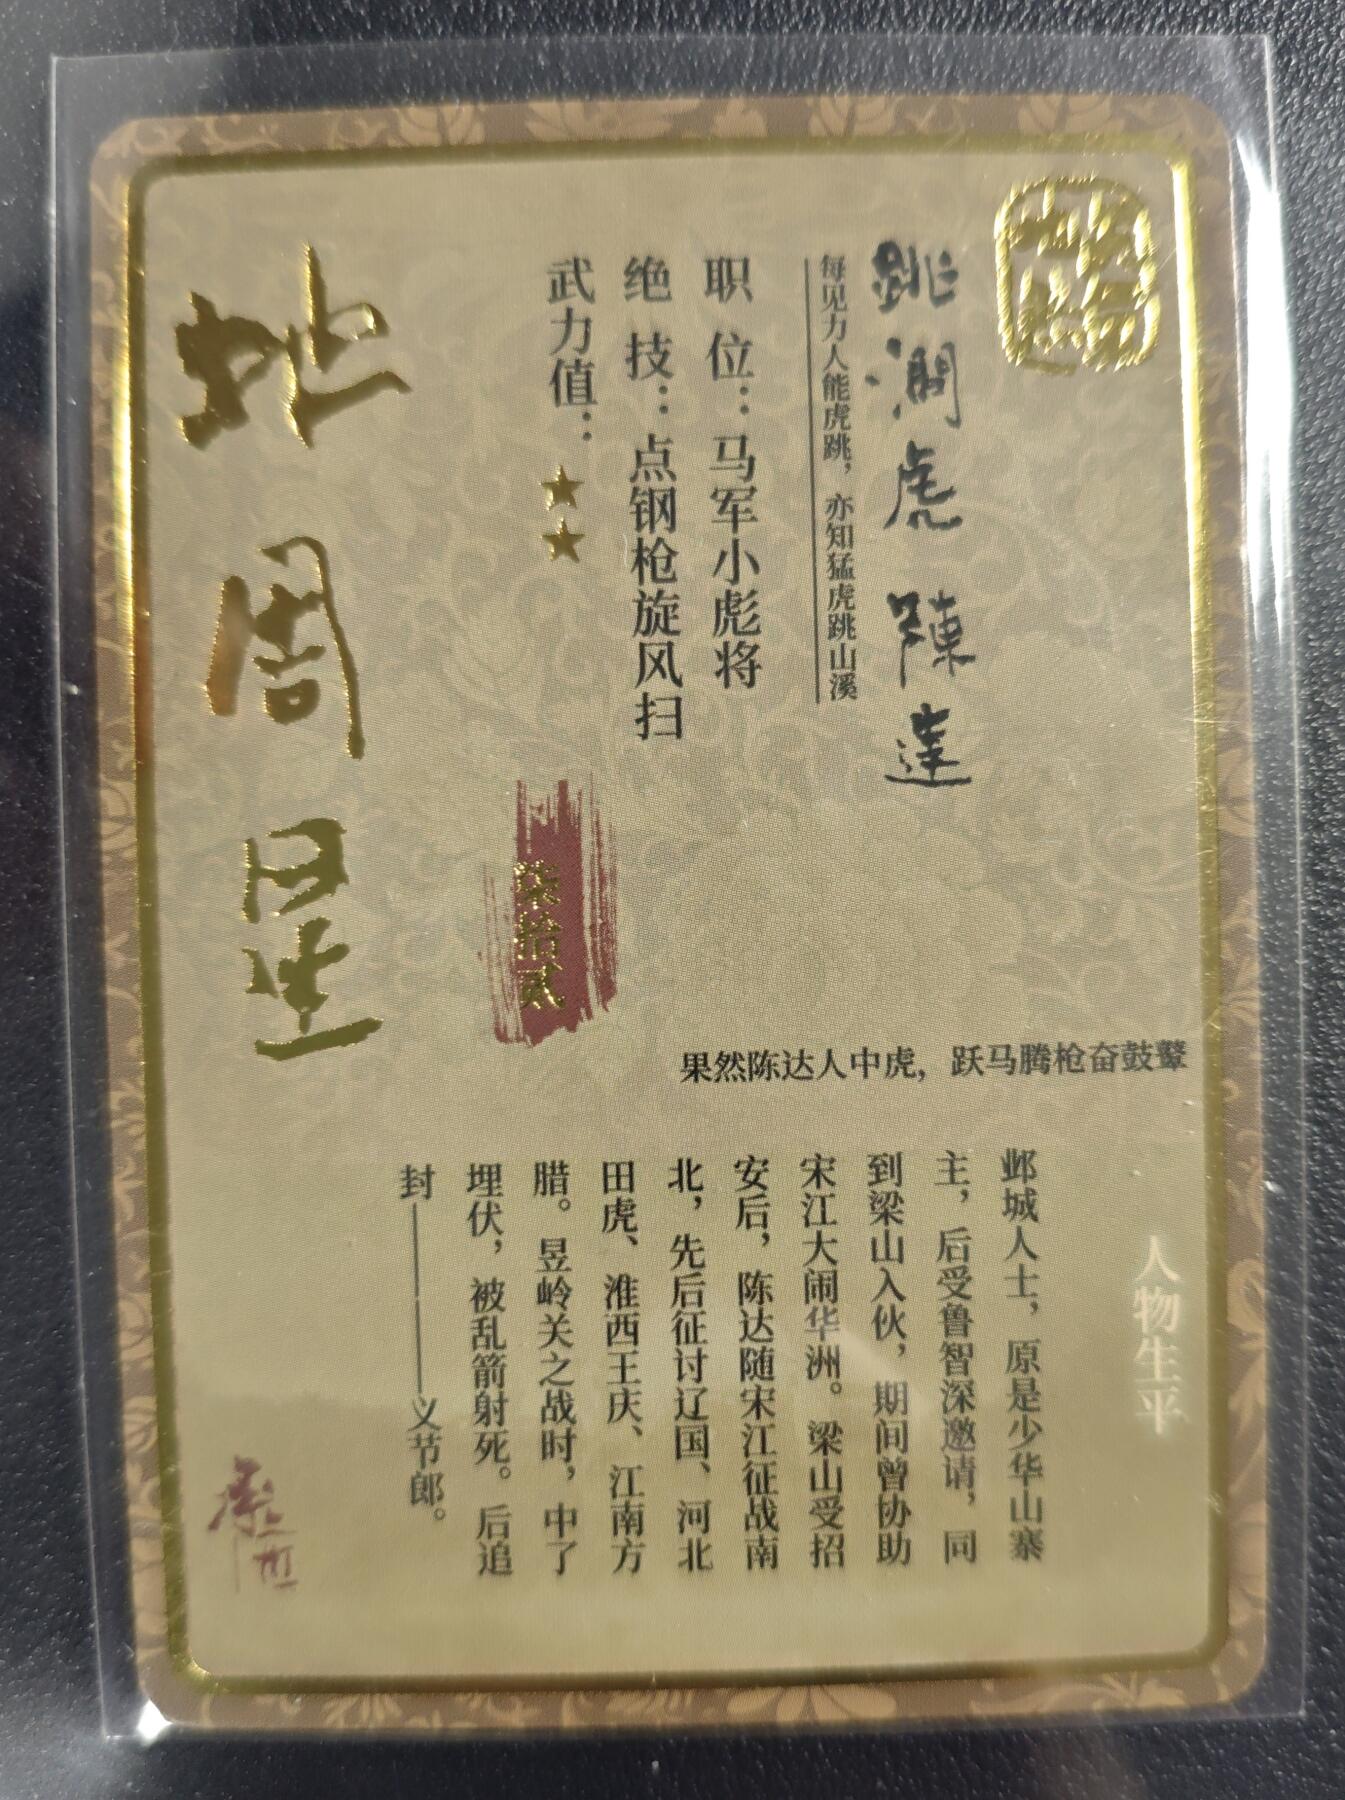 跳澗虎 陳達
每见力人能虎跳，亦知猛虎跳山溪
职 位：马军小彪将
绝 技：点钢枪旋风扫
武力值：★★
柒拾贰
地周星
果然陈达人中虎，跃马腾枪奋鼓鼙
人物生平
邺城人士，原是少华山寨
主，后受鲁智深邀请，同
到梁山入伙，期间曾协助
宋江大闹华洲。梁山受招
安后，陈达随宋江征战南
北，先后征讨辽国、河北
田虎、淮西王庆、江南方
腊。昱岭关之战时，中了
埋伏，被乱箭射死。后追
封————义节郎。